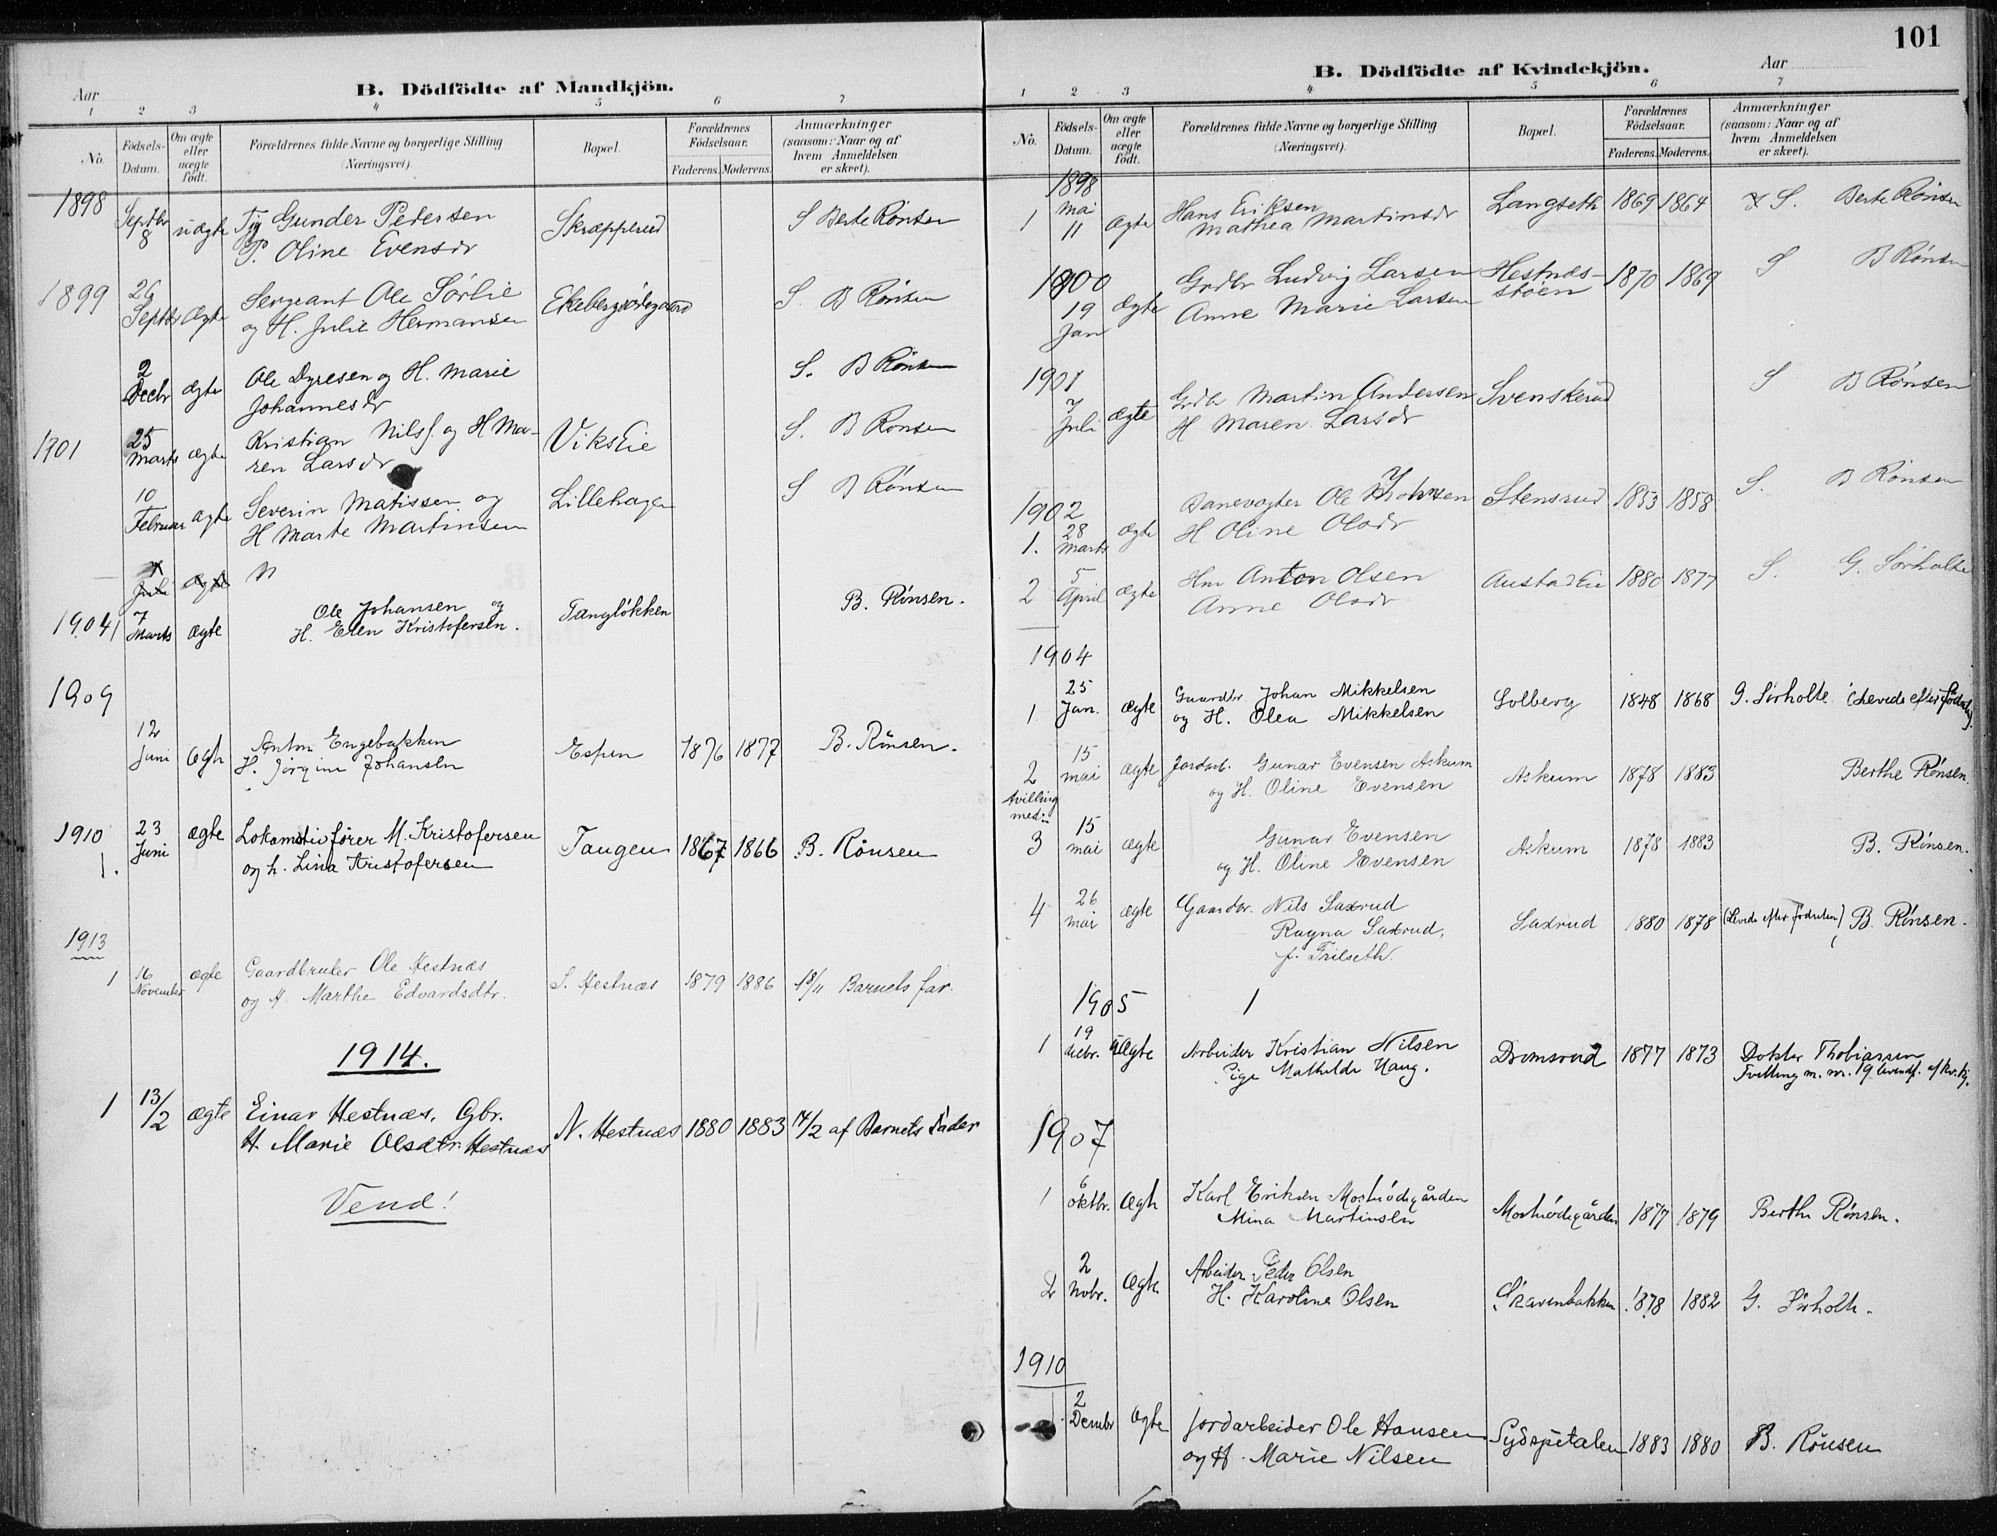 101
Aar
B. Dödfödte af Mandkjön.
1 2 3 4 5 6 7
No.
Födsels-Datum.
Om ægte eller uægte födt.
Forældrenes fulde Navne og borgerlige Stilling (Næringsvei).
Bopæl.
Forældrenes Födselsaar.
Faderens. Moderens.
Anmærkninger (saasom: Naar og af hvem Anmeldelsen er skeet).
1898
Septbr 8 uægte Gunder Petersen Skræpperud S Berte Rønsen
P. Oline Evensdr
1899
26 Septbr Ægte Sergeant Ole Sørlie S. B Rønsen
og H. Julie Hermansen
2 Decbr ægte Ole Dyresen og H. Marie S. B Rønsen
Johannesdr
1901
25 Marts ægte Kristian Nilss. og H Ma- Viks Eie S. B Rønsen
ren Larsdr
10 Februar ægte Severin Matissen og Lillehagen S B Rønsen
H Marte Martinsen
Juli ægte
1904 7 Marts ægte Ole Johansen og Tangløkken B. Rønsen.
H. Elen Kristofersen.
1909
12 Juni Ægte Anton Engebakken Espen 1876 1877 B. Rønsen.
H. Jørgine Johansen
1910
1. 23 Juni ægte Lokomotivfører M. Kristofersen Tangen 1867 1866 B. Rønsen
og h. Lina Kristofersen
1913
1 16 November ægte Gaardbruker Ole Hestnæs S. Hestnæs 1879 1886 18/11 Barnets far.
og H. Marthe Edvardsdtr.
1914.
1 13/2 ægte Einar Hestnæs, Gbr. N. Hestnæs 1880 1883 14/2 af Barnets Fader
H. Marie Olsdtr. Hestnæs
Vend!
Aar
B. Dödfödte af Kvindekjön.
1 2 3 4 5 6 7
No.
Födsels-Datum.
Om ægte eller uægte födt.
Forældrenes fulde Navne og borgerlige Stilling (Næringsvei).
Bopæl.
Forældrenes Födselsaar.
Faderens. Moderens.
Anmærkninger (saasom: Naar og af hvem Anmeldelsen er skeet).
1898
1 Mai 11 Ægte Hans Eriksen Langseth 1869 1864 S. Berte Rønsen
Mathea Martinsdr
1900
19 Jan Ægte Grdbr Ludvig Larsen Hestnæs- 1870 1869 S B Rønsen
Anne Marie Larsen støen
1901
7 Juli Ægte Grdbr Martin Andersen Svenskerud S B Rønsen
H Maren Larsdr
1902
1. 28 Marts Ægte Banevogter Ole Johnsen Stensrud 1853 1858 S. B Rønsen
H Oline Olsdr
2 5 April Ægte Hm Anton Olsen Austad Eie 1880 1877 S. G. Sørholte
Anne Olsdr
1904
1 25 Jan. ægte Gaardbr Johan Mikkelsen Solberg 1848 1868 G. Sørholte (Levede efter fødselen).
og H. Olea Mikkelsen
2 15 mai ægte Jordarb. Gunar Evensen Askum Askum 1878 1883 Berthe Rønsen.
og H. Oline Evensen
tvilling med:
3 15 mai ægte Gunar Evensen Askum 1878 1883 B. Rønsen.
og H. Oline Evensen
4 26 mai ægte Gaardbr. Nils Saxrud Saxrud 1880 1878 (Levede efter fødselen) B. Rønsen.
Ragna Saxrud,
f. Frilseth.
1905
1
1 19 decbr. uÆgte Arbeider Kristian Nilsen Dromsrud 1877 1873 Doktor Thobiassen
Pige Mathilde Haug. Tvilling m. nr. 19 levendf. af kv.kj.
1907
1 6 oktbr. Ægte Karl Eriksen Mostuödegården Mostuödegården 1877 1879 Berthe Rønsen.
Mina Martinsen
2 2 Novbr. Ægte Arbeider Peder Olsen Skavenbakken 1878 1882 G. Sørholte.
H. Karoline Olsen
1910
1. 2 Dcmbr Ægte Jordarbeider Ole Hansen Sydspetalen 1883 1880 B. Rønsen
og H. Marie Nilsen